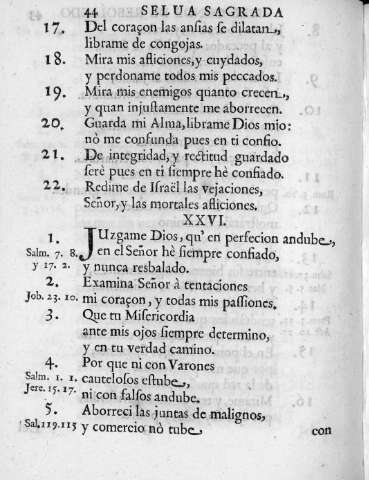 44 SELUA SAGRADA
17. Del coraçon las ansias se dilatan,
librame de congojas.
18. Mira mis afliciones, y cuydados,
y perdoname todos mis peccados.
19. Mira mis enemigos quanto crecen,
y quan injustamente me aborrecen.
20. Guarda mi Alma, librame Dios mio:
nò me confunda pues en ti confio.
21. De integridad, y rectitud guardado
serè pues en ti siempre hè confiado.
22. Redime de Israël las vejaciones,
Señor, y las mortales afliciones.
XXVI.
1. JUzgame Dios, qu' en perfecion andube,
Salm. 7. 8. en el Señor hè siempre confiado,
y 17. 2. y nunca resbalado.
2. Examina Señor à tentaciones
Job. 23. 10. mi coraçon, y todas mis passiones.
3. Que tu Misericordia
ante mis ojos siempre determino,
y en tu verdad camino.
4. Por que ni con Varones
Salm. 1. 1. cautelosos estube,
Jere. 15. 17. ni con falsos andube.
5. Aborreci las juntas de malignos,
Sal. 119. 115 y comercio nò tube,
con